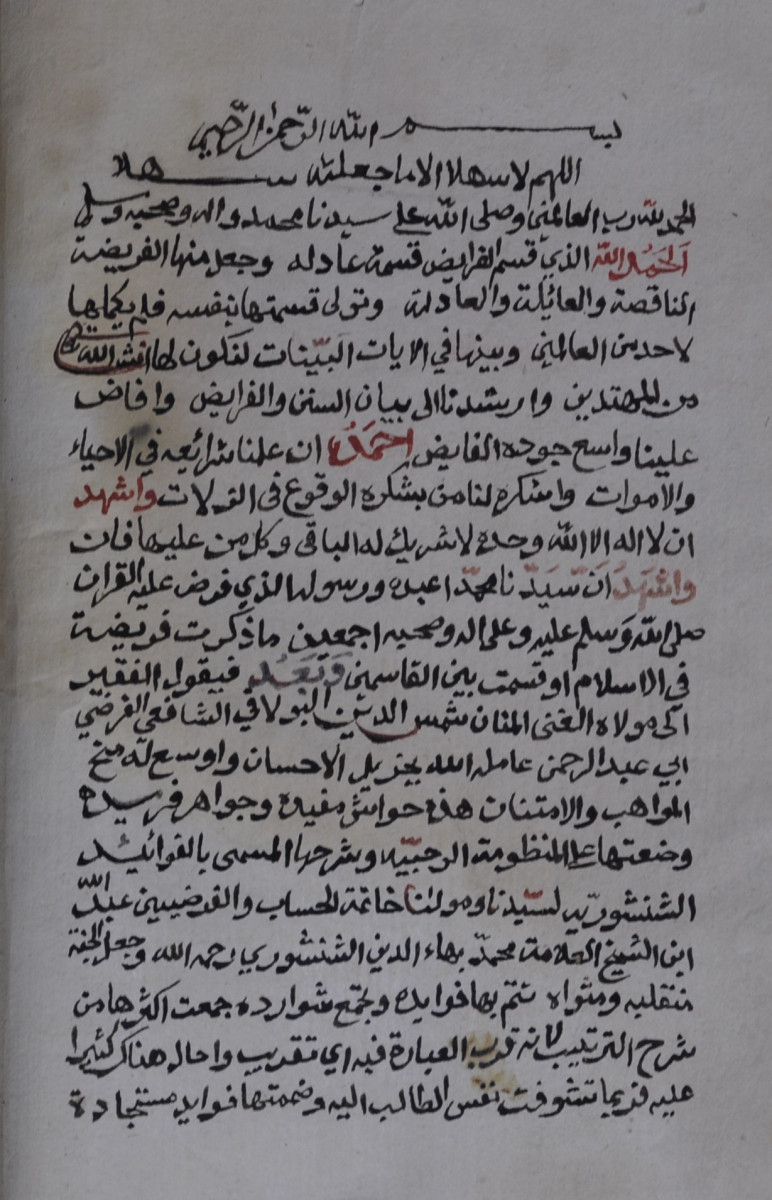 بسم الله الرحمن الرحيم
اللهم لا سهلا الا ما جعلته سهلا
الحمد لله رب العالمين وصلى الله على سيدنا محمد واله وصحبه وسلم
الحمد لله الذي قسم الفرايض قسمة عادله وجعل منها الفريضة
الناقصة والعائلة والعادلة وتولى قسمتها بنفسه فلم يكلها
لاحد من العالمين وبينها في الايات البينات لنكون لها انشا الله
من المهتدين وارشدنا الى بيان السنن والفرايض وافاض
علينا واسع جوده الفايض احمده ان علمنا شرائعه في الاحياء
والاموات واشكره لنا من بشكره الوقوع في الزلات واشهد
ان لا اله الا الله وحده لا شريك له الباقي وكل من عليها فان
واشهد ان سيدنا محمدا عبده ورسوله الذي فرض عليه القران
صلى الله وسلم عليه وعلى اله وصحبه اجمعين ما ذكرت فريضة
في الاسلام او قسمت بين القاسمين وبعد فيقول الفقير
الى مولاه الغنى المنان شمس الدين البولاقي الشافعي الفرضي
ابي عبد الرحمن عامله الله بجزيل الاحسان واوسع له منح
المواهب والامتنان هذه حواش مفيدة وجواهر فريدة
وضعتها على المنظومة الرحبيه وشرحها المسمى بالفوائد
الشنشوريه لسيدنا ومولنا خاتمة الحساب والفرضيين عبد الله
ابن الشيخ العلامة محمد بهاء الدين الشنشوري رحمه الله وجعل الجنة
منقلبه ومثواه تتم بها فوايده وتجمع شوارده جمعت اكثرها من
شرح الترتيب لانه قرب العبارة فيه اي تقريب واحال هناك كثيرا
عليه فربما تشوفت نفس الطالب اليه وضممتها فوايد مستجادة